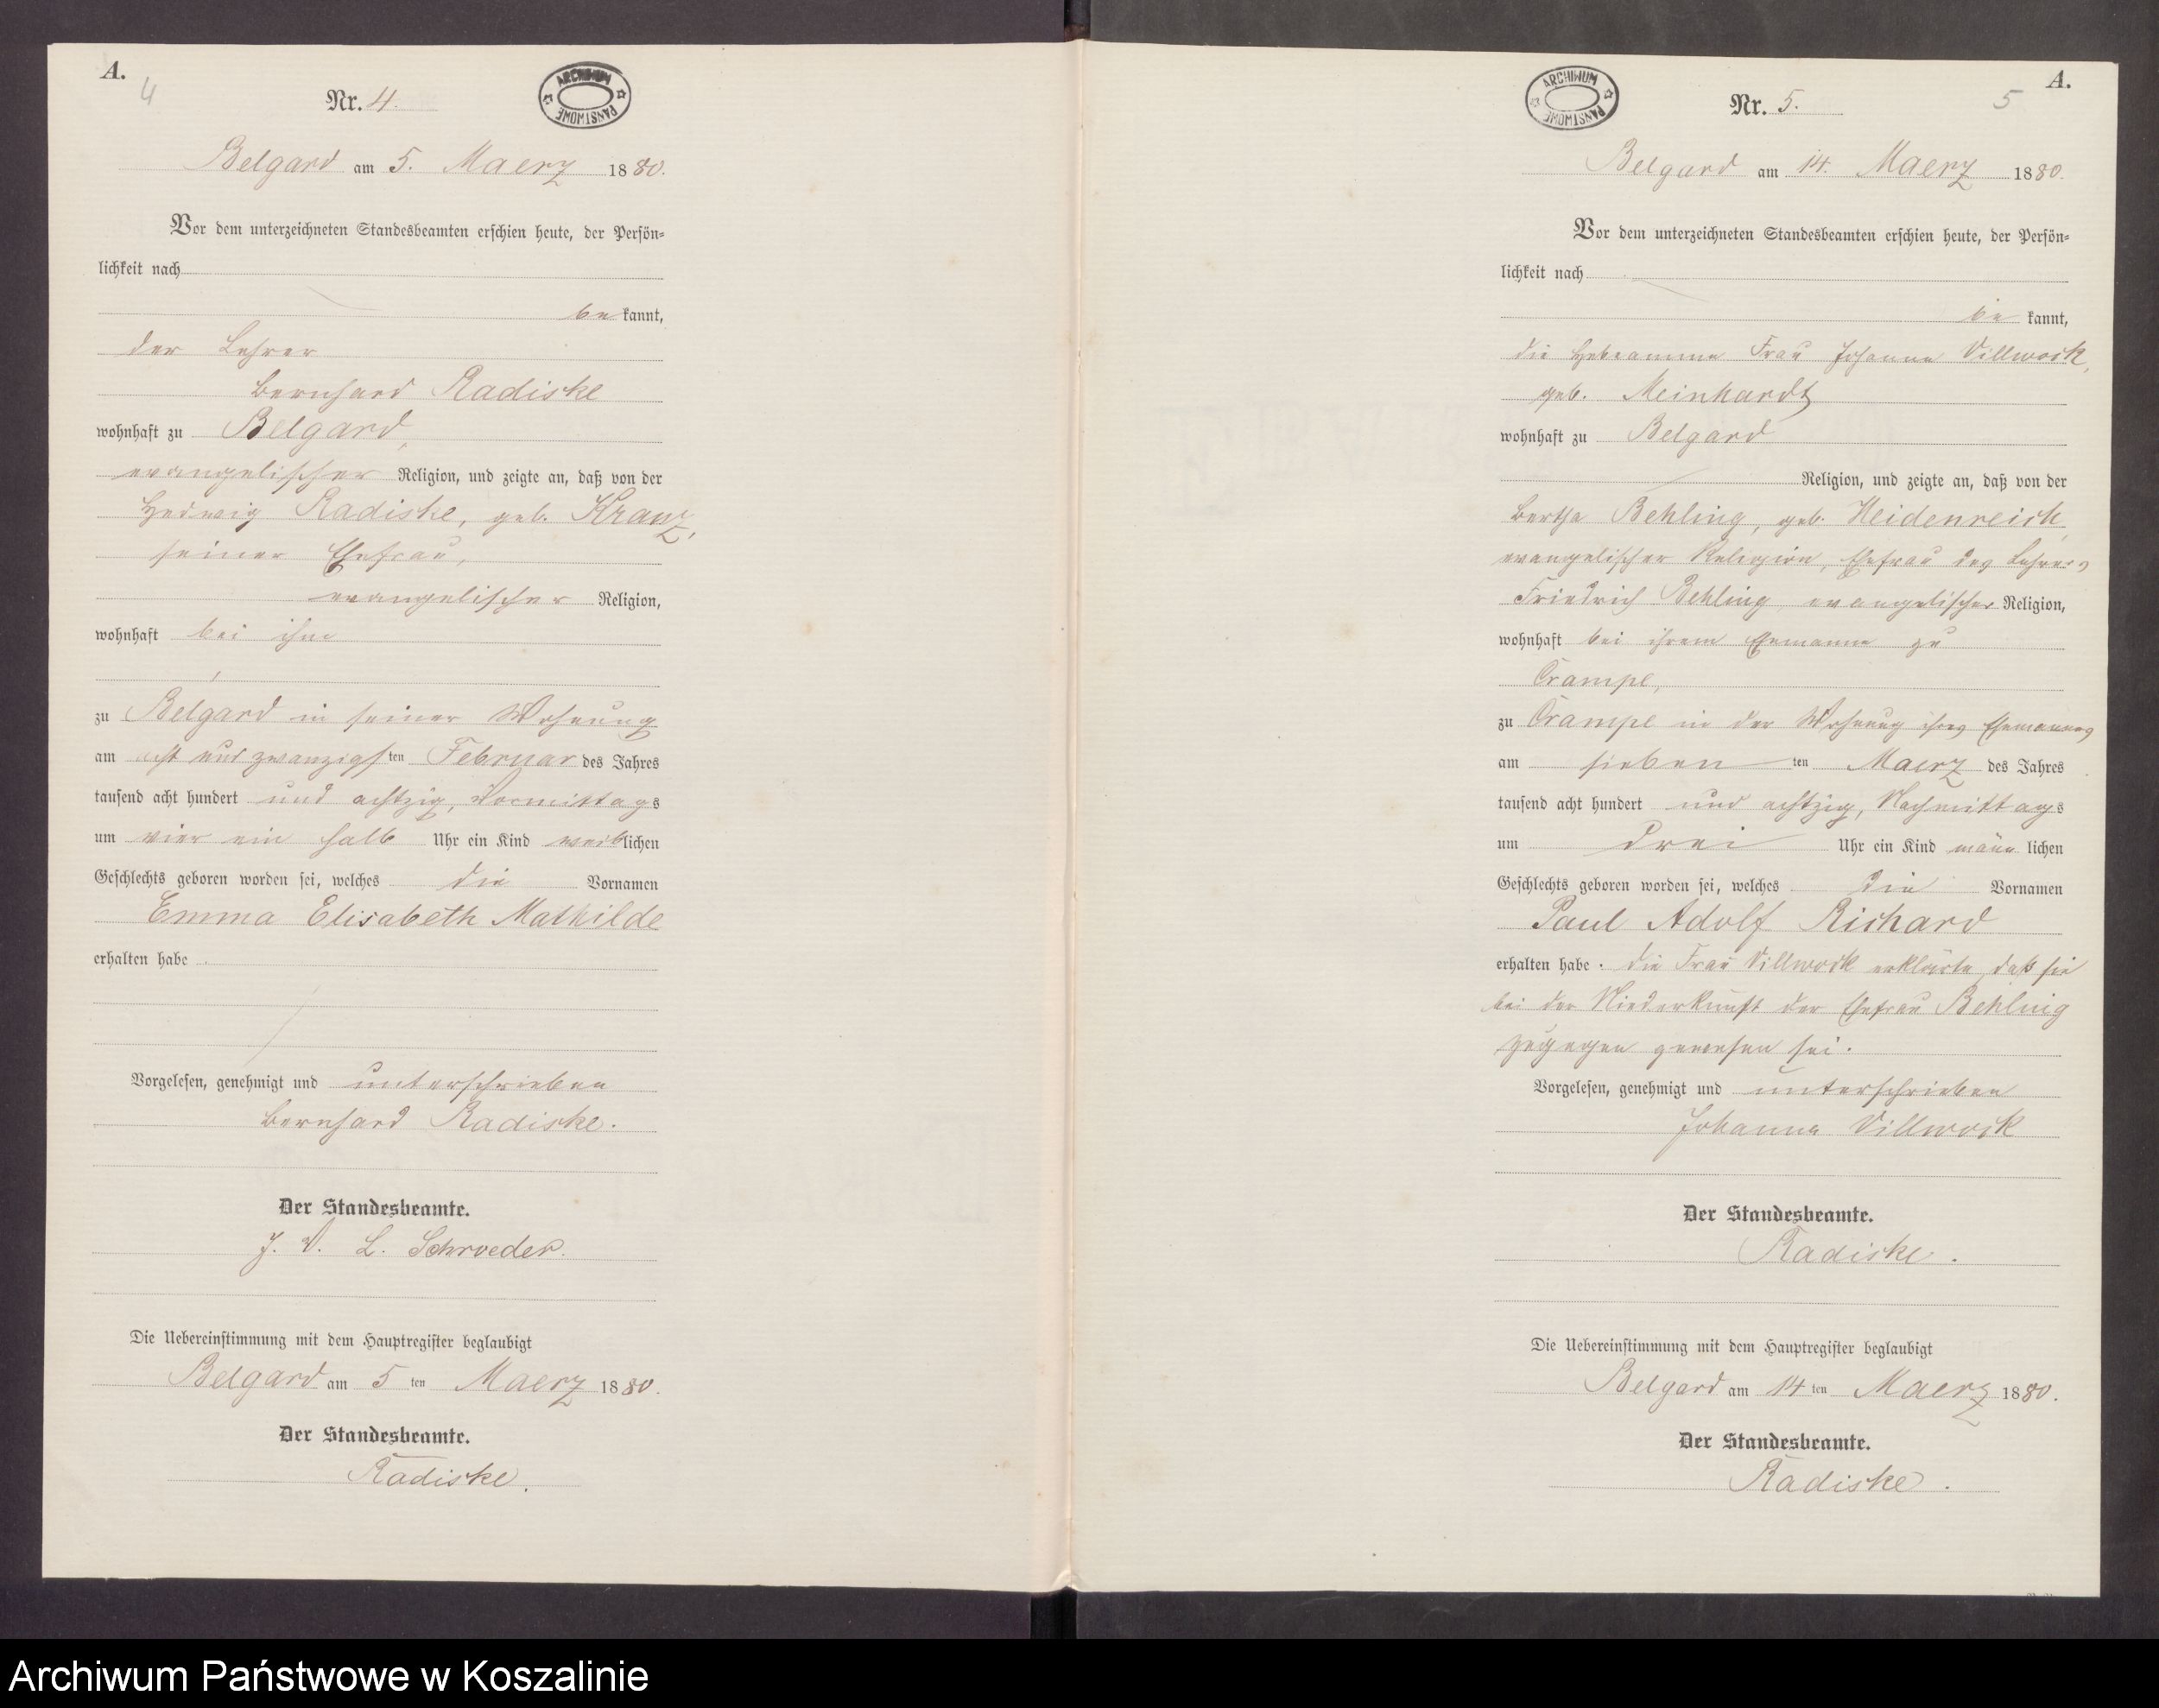 A.
4
Nr. 4.
ARCHIWUM PAŃSTWOWE
Belgard am 5. Maerz 1880.
Vor dem unterzeichneten Standesbeamten erschien heute, der Persön=
lichkeit nach
be kannt,
der Lehrer
Bernhard Radiske
wohnhaft zu Belgard,
evangelischer Religion, und zeigte an, daß von der
Hedwig Radiske, geb. Kranz,
seiner Ehefrau,
evangelischer Religion,
wohnhaft bei ihm
zu Belgard in seiner Wohnung
am acht und zwanzigsten Februar des Jahres
tausend acht hundert und achtzig, Vormittags
um vier ein halb Uhr ein Kind weiblichen
Geschlechts geboren worden sei, welches die Vornamen
Emma Elisabeth Mathilde
erhalten habe.
Vorgelesen, genehmigt und unterschrieben
Bernhard Radiske.
Der Standesbeamte.
J. V. L. Schroeder.
Die Uebereinstimmung mit dem Hauptregister beglaubigt
Belgard am 5 ten Maerz 1880.
Der Standesbeamte.
Radiske.
A.
5
Nr. 5.
ARCHIWUM PAŃSTWOWE
Belgard am 14. Maerz 1880.
Vor dem unterzeichneten Standesbeamten erschien heute, der Persön=
lichkeit nach
be kannt,
die Hebeamme Frau Johanna Villwock,
geb. Meinhardt
wohnhaft zu Belgard
Religion, und zeigte an, daß von der
Bertha Behling, geb. Heidenreich,
evangelischer Religion, Ehefrau des Lehrers
Friedrich Behling, evangelischer Religion,
wohnhaft bei ihrem Ehemanne zu
Crampe,
zu Crampe in der Wohnung ihres Ehemannes
am sieben ten Maerz des Jahres
tausend acht hundert und achtzig, Nachmittags
um drei Uhr ein Kind männ lichen
Geschlechts geboren worden sei, welches die Vornamen
Paul Adolf Richard
erhalten habe. Die Frau Villwock erklärte, daß sie
bei der Niederkunft der Ehefrau Behling
zugegen gewesen sei.
Vorgelesen, genehmigt und unterschrieben
Johanna Villwock
Der Standesbeamte.
Radiske.
Die Uebereinstimmung mit dem Hauptregister beglaubigt
Belgard am 14 ten Maerz 1880.
Der Standesbeamte.
Radiske.
Archiwum Państwowe w Koszalinie